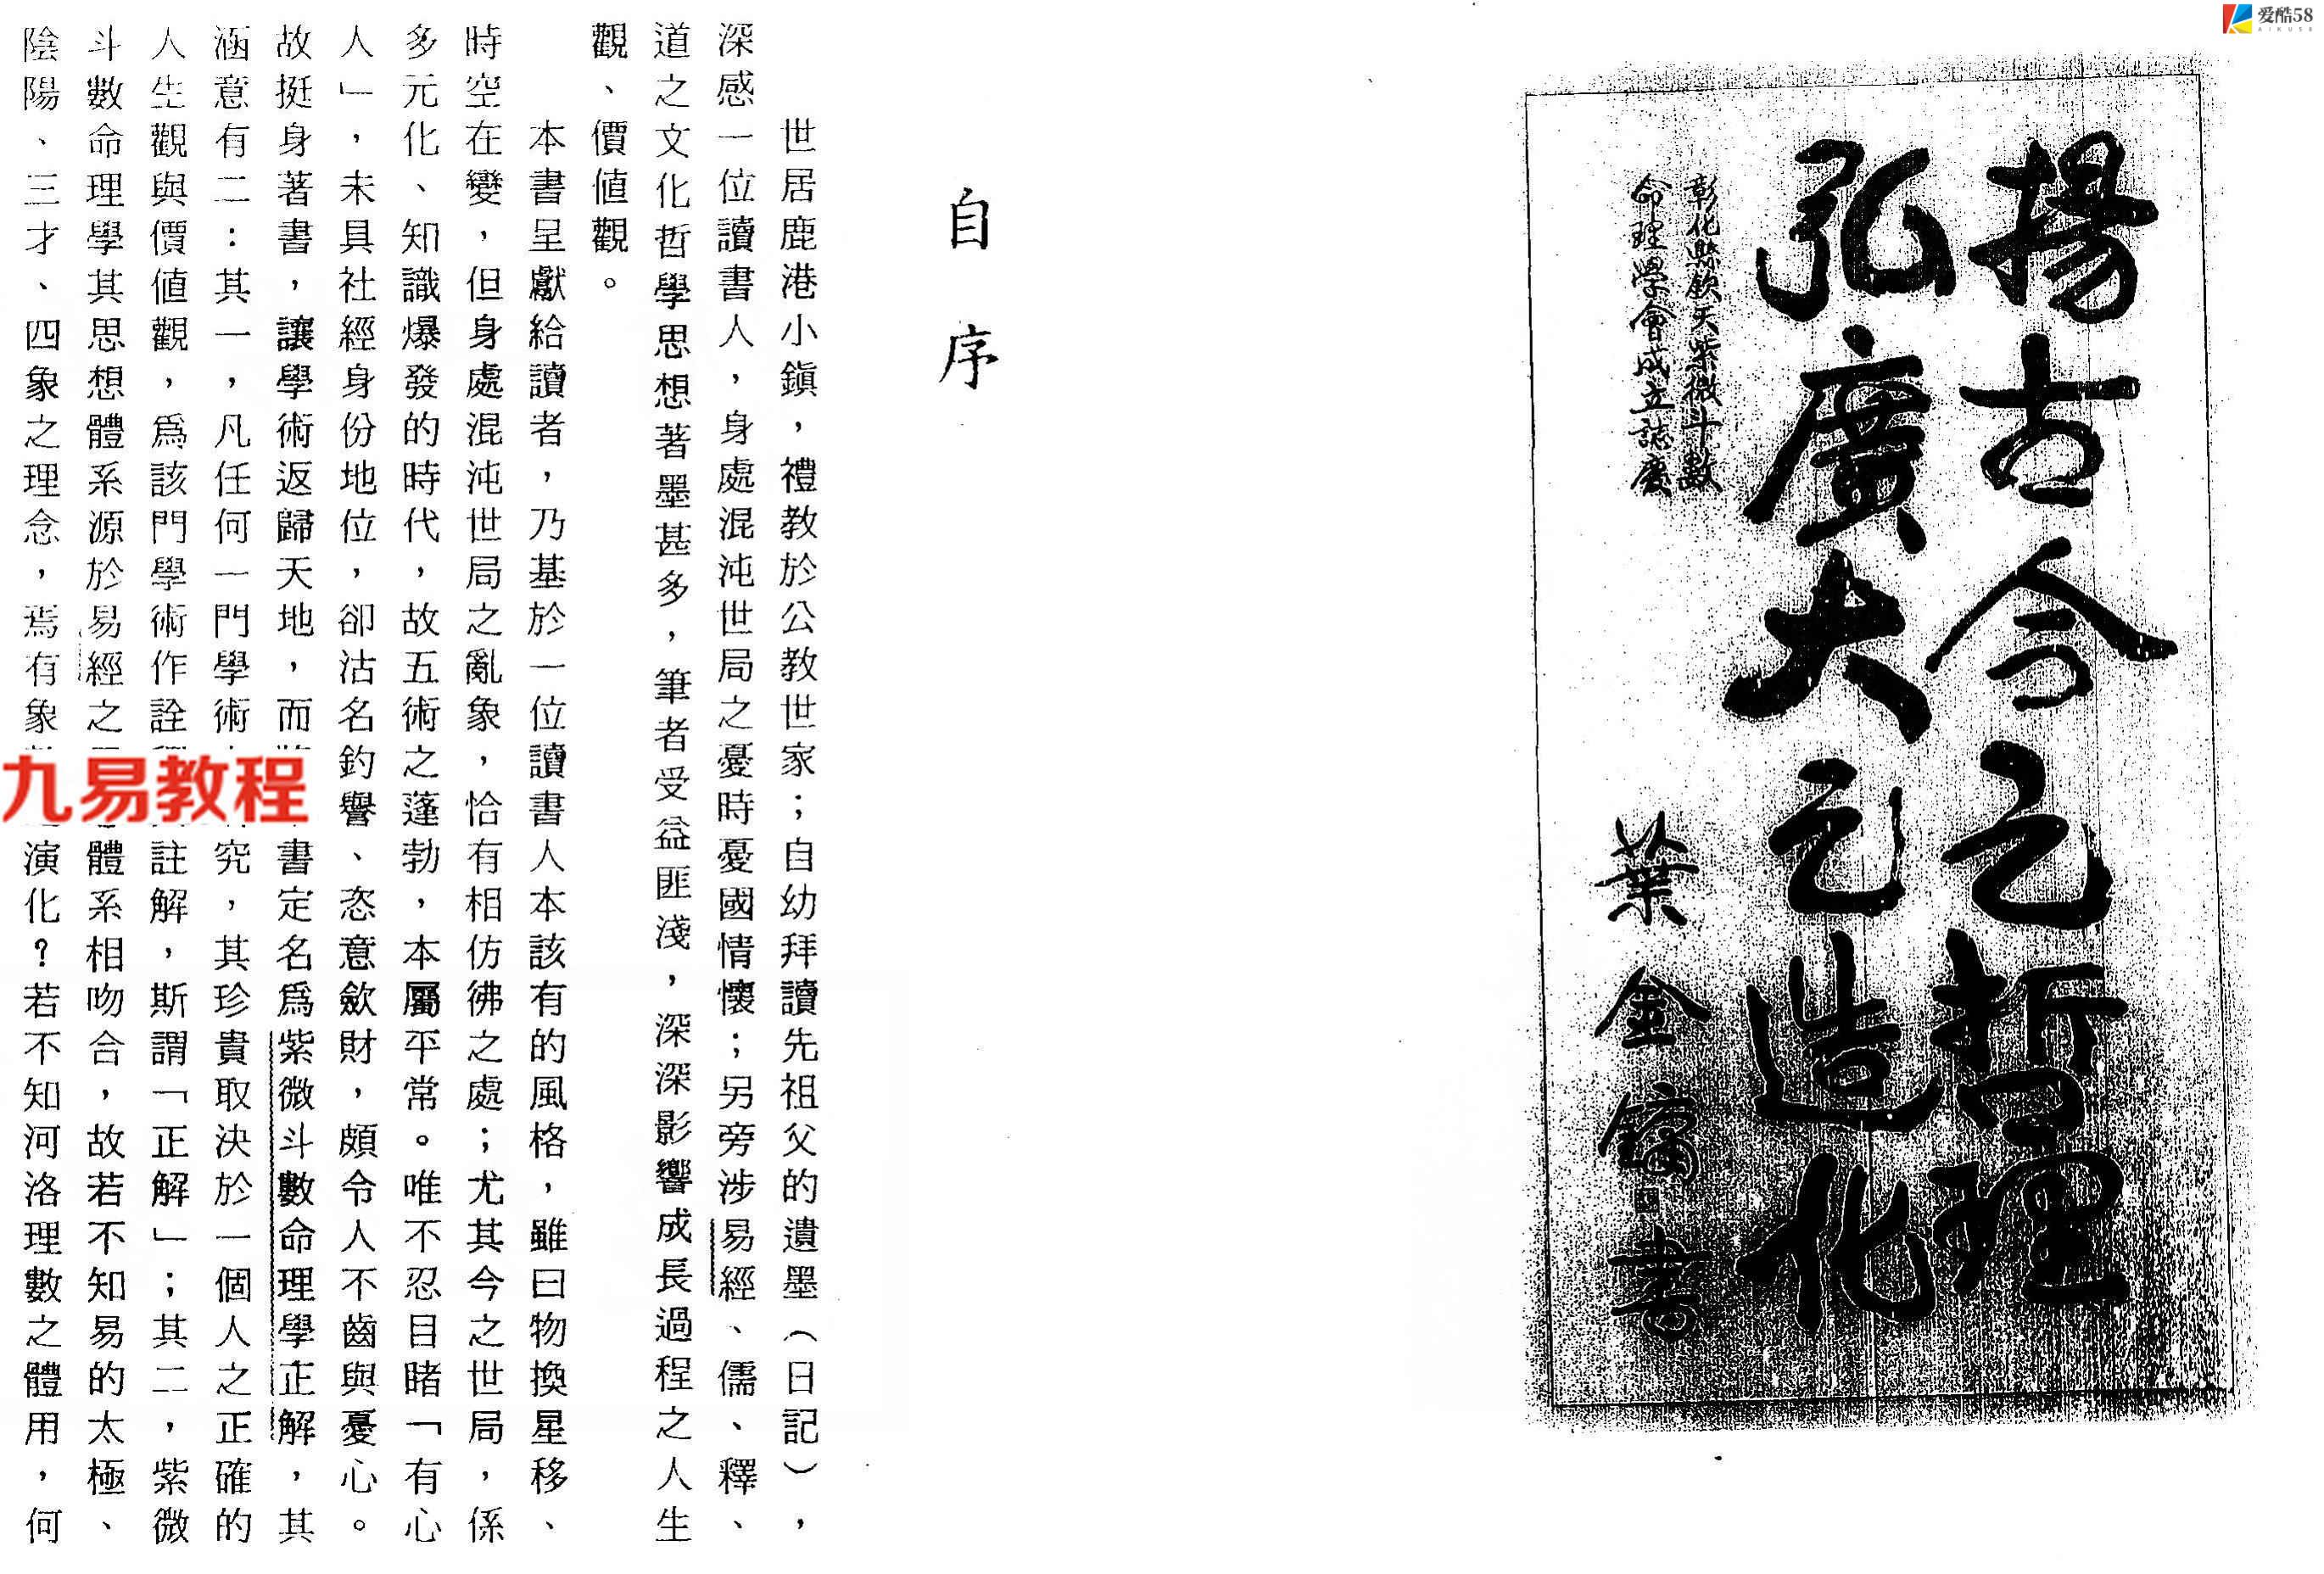 爱酷58
AIKU58
揚古今之哲理
弘廣大之造化
彰化縣欽天紫微斗數
命理學會成立誌慶
葉金鏞書
自序
世居鹿港小鎭，禮教於公教世家；自幼拜讀先祖父的遺墨（日記），
深感一位讀書人，身處混沌世局之憂時憂國情懷；另旁涉易經、儒、釋、
道之文化哲學思想著墨甚多，筆者受益匪淺，深深影響成長過程之人生
觀、價値觀。
本書呈獻給讀者，乃基於一位讀書人本該有的風格，雖曰物換星移、
時空在變，但身處混沌世局之亂象，恰有相仿彿之處；尤其今之世局，係
多元化、知識爆發的時代，故五術之蓬勃，本屬平常。唯不忍目睹「有心
人」，未具社經身份地位，卻沽名釣譽、恣意斂財，頗令人不齒與憂心。
故挺身著書，讓學術返歸天地，而書定名爲紫微斗數命理學正解，其
涵意有二：其一，凡任何一門學術究，其珍貴取決於一個人之正確的
人生觀與價値觀，爲該門學術作詮註解，斯謂「正解」；其二，紫微
斗數命理學其思想體系源於易經之體系相吻合，故若不知易的太極、
陰陽、三才、四象之理念，焉有象演化？若不知河洛理數之體用，何
九易教程